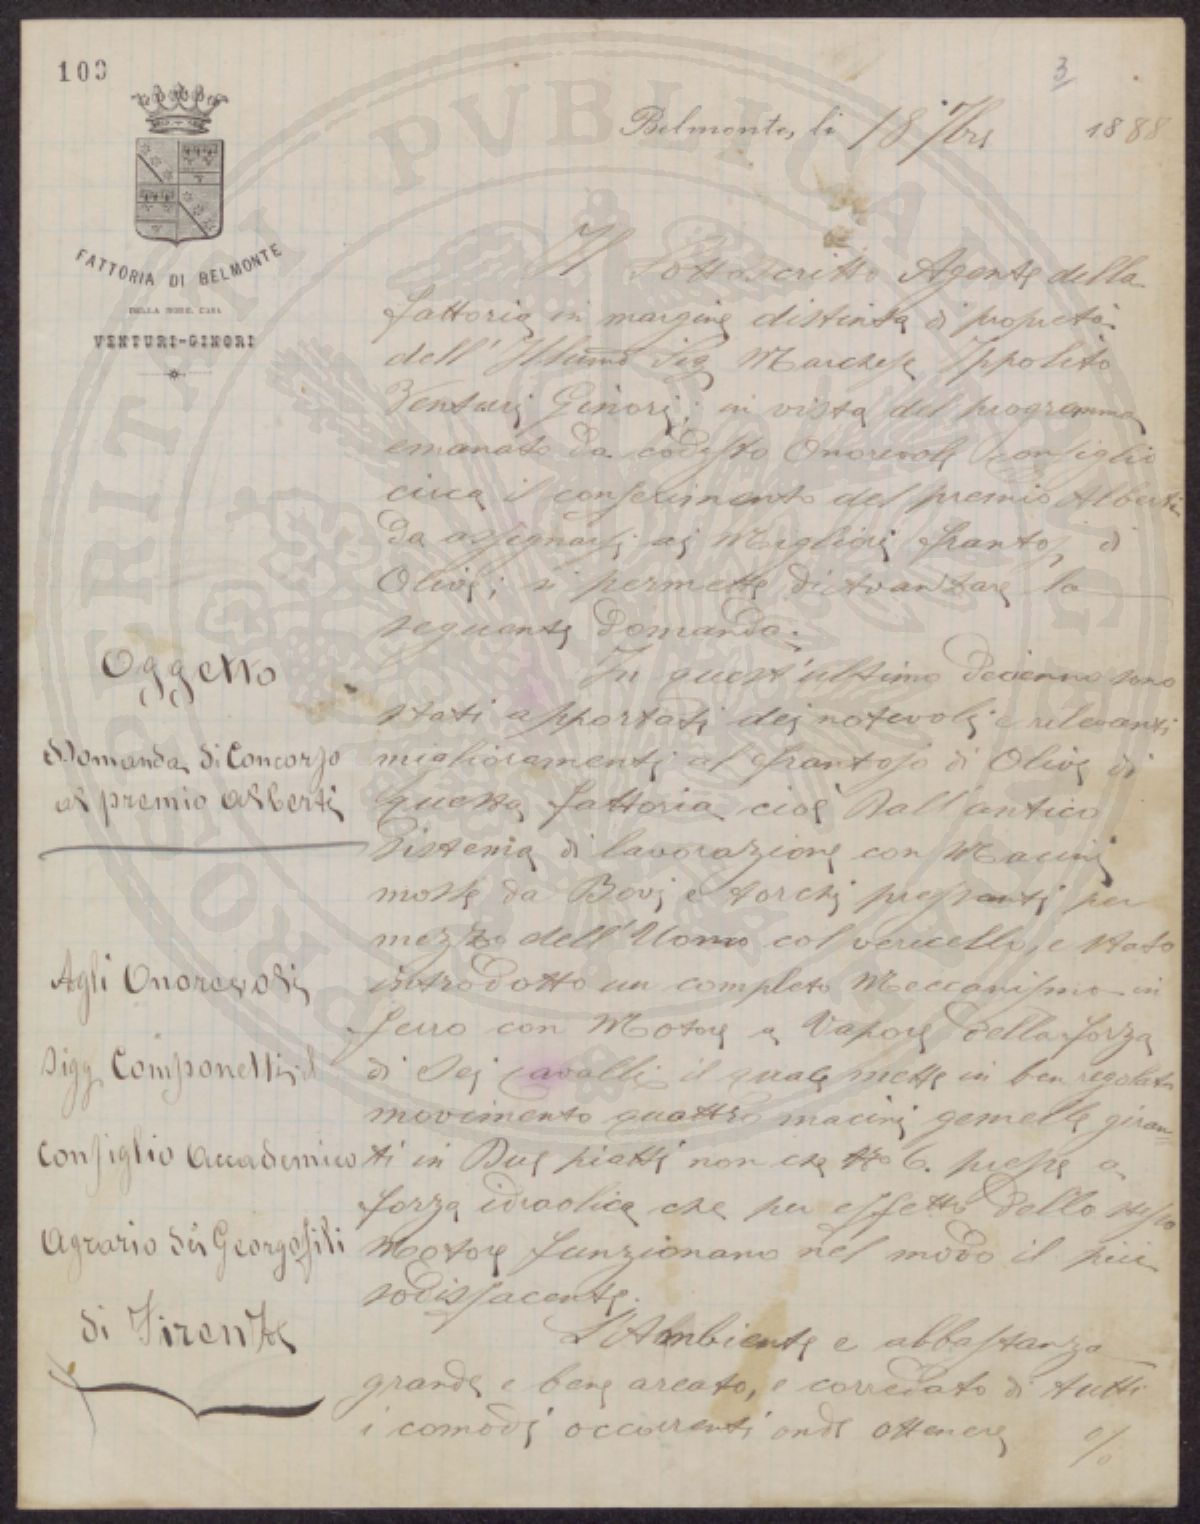 100
3
FATTORIA DI BELMONTE
DELLA NOBIL CASA
VENTURI-GINORI
Belmonte, li 18 7bre 1888
Il Sottoscritto Agente della
fattoria in margine distinta di proprietà
dell' Illumo Sig Marchese Ippolito
Venturi Ginori; in vista del programma
emanato da codesto Onorevole Consiglio
circa il conferimento del premio Alberti
da assegnarsi ai Migliori frantoj di
Olive; si permette di Avanzare la
seguente domanda:
In quest'ultimo decienno sono
stati apportati dei notevoli e relevanti
miglioramenti al frantojo di Olive di
questa fattoria cioè dall'antico
Sistema di lavorazione con Macini
mosse da Bovi e torchi pressanti per
mezzo dell'Uomo col vericello, e stato
introdotto un completo Meccanismo in
ferro con Motore a Vapore della forza
di Sei Cavalli il quale mette in ben regolato
movimento quattro macini gemelle giran=
ti in Due piatti non che No 6. presse a
forza idraolica che per effetto dello stesso
Motore funzionano nel modo il più
sodisfacente.
L'Ambiente e abbastanza
grande e bene areato, e corredato di tutti
i comodi occorrenti onde ottenere %
Oggetto
Domanda di Concorso
al premio Alberti
Agli Onorevoli
Sigg Componenti il
Consiglio Accademico
Agrario dei Georgofili
di Firenze
PROSPERITATI PUBLICAE